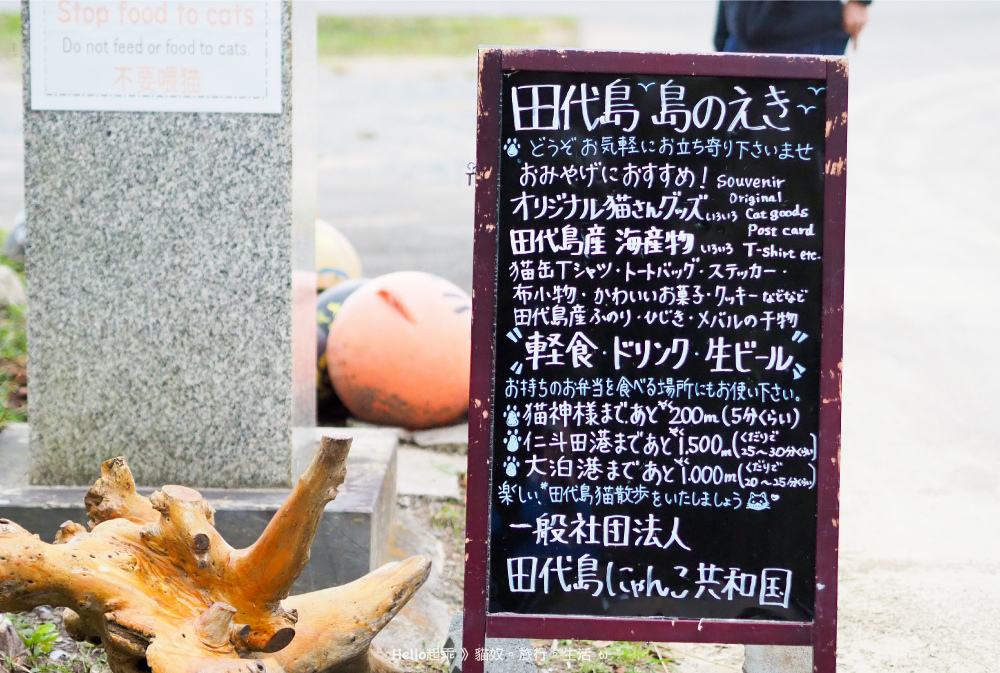 Stop food to cats
Do not feed or food to cats
不要喂猫
田代島 島のえき
どうぞ お気軽にお立ち寄り下さいませ
おみやげにおすすめ! Souvenir
オリジナル猫さんグッズ いろいろ Original Cat goods
田代島産 海産物 いろいろ Post card T-shirt etc.
猫缶Tシャツ・トートバッグ・ステッカー・
布小物・かわいいお菓子・クッキーなどなど
田代島産ふのり・ひじき・メバルの干物
軽食・ドリンク・生ビール
お持ちのお弁当を食べる場所にもお使い下さい。
猫神様まであと200m(5分くらい)
仁斗田港まであと1.500m(くだりで25～30分くらい)
大泊港まであと1.000m(くだりで20～25分くらい)
楽しい田代島猫散歩をいたしましょう
一般社団法人
田代島にゃんこ共和国
Hello起乖》貓奴。旅行。生活